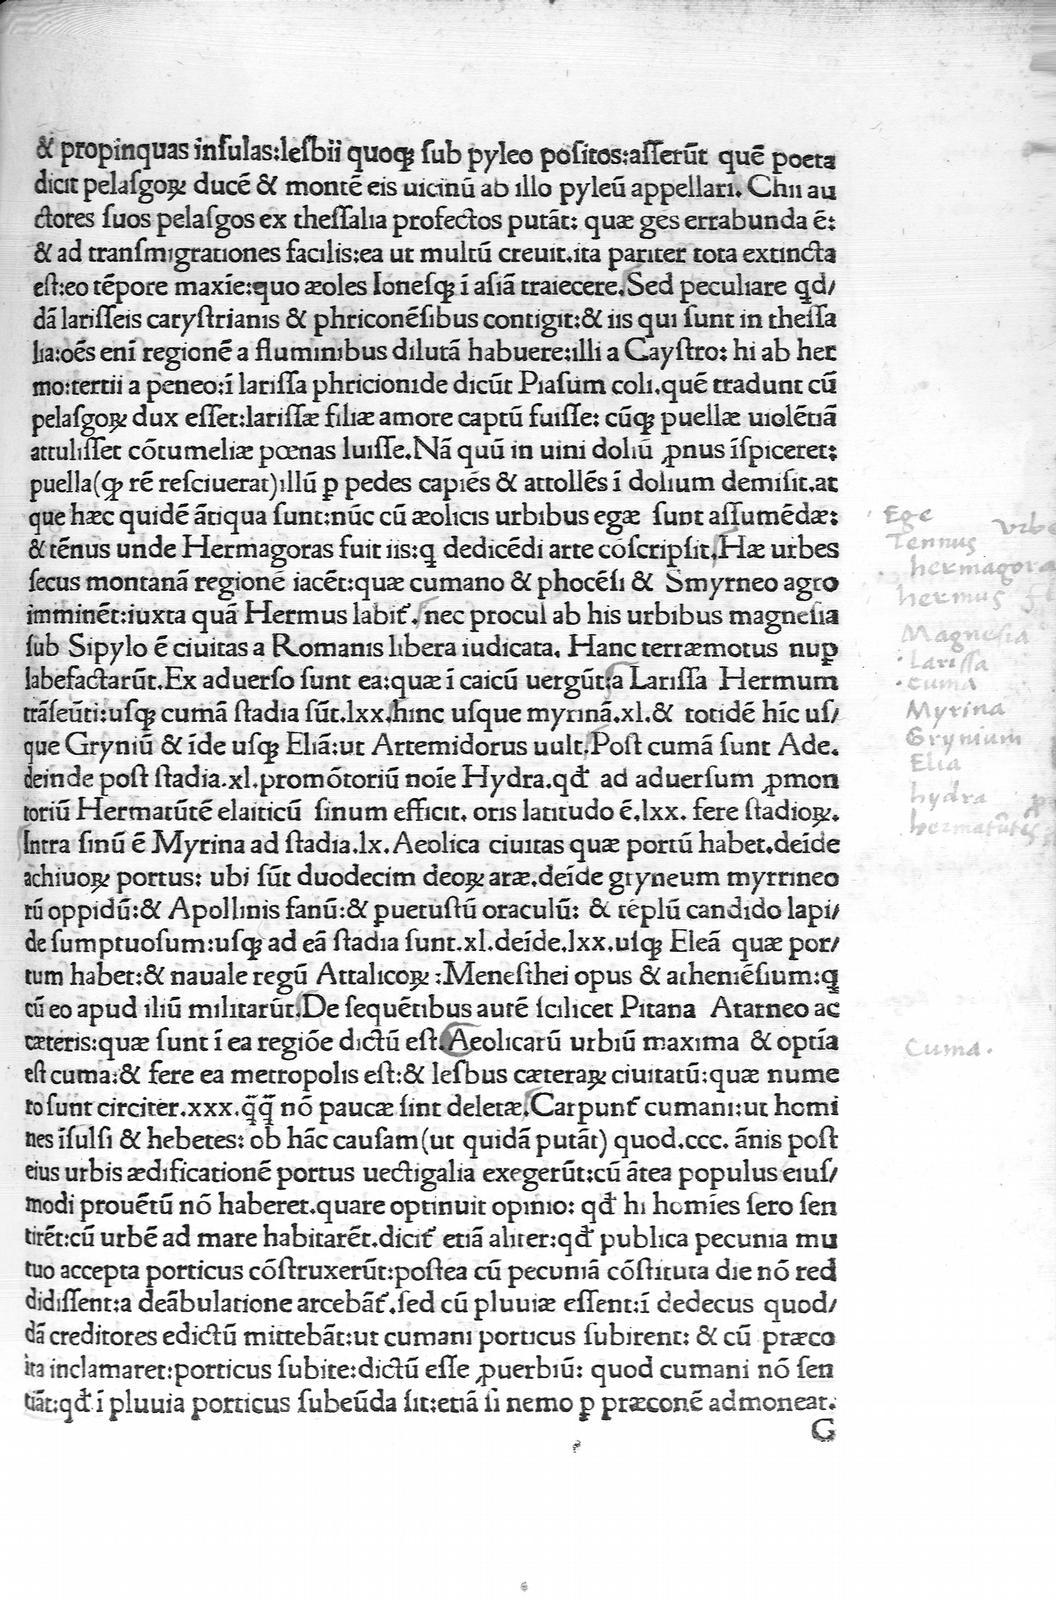 & propinquas inſulas:leſbii quoqꝫ ſub pyleo poſitos:aſſerūt quē poeta
dicit pelaſgoꝝ ducē & montē eis uicinū ab illo pyleū appellari. Chii au
ctores ſuos pelaſgos ex theſſalia profectos putāt: quæ gēs errabunda ē:
& ad tranſmigrationes facilis:ea ut multū creuit.ita pariter tota extincta
eſt:eo tēpore maxīe:quo æoles Ioneſqꝫ ī aſiā traiecere.Sed peculiare qd/
dā lariſſeis cayſtrianis & phriconēſibus contigit:& iis qui ſunt in theſſa
lia:oēs enī regionē a fluminibus dilutā habuere:illi a Cayſtro: hi ab her
mo:tertii a peneo:ī lariſſa phricionide dicūt Piaſum coli.quē tradunt cū
pelaſgoꝝ dux eſſet:lariſſæ filiæ amore captū fuiſſe: cūqꝫ puellæ uiolētiā
attuliſſet cōtumeliæ pœnas luiſſe.Nā quū in uini doliū ꝓnus īſpiceret:
puella(qꝫ rē reſciuerat)illū ꝑ pedes capiēs & attollēs ī dolium demiſit.at
que hæc quidē ātiqua ſunt:nūc cū æolicis urbibus egæ ſunt aſſumēdæ:
& tēnus unde Hermagoras fuit iis:q dedicēdi arte cōſcripſit.Hæ urbes
ſecus montanā regionē iacēt:quæ cumano & phocēſi & Smyrneo agro
imminēt:iuxta quā Hermus labit᷑.nec procul ab his urbibus magneſia
ſub Sipylo ē ciuitas a Romanis libera iudicata. Hanc terræmotus nuꝑ
labefactarūt.Ex aduerſo ſunt ea:quæ ī caicū uergūt:a Lariſſa Hermum
trāſeūti:uſqꝫ cumā ſtadia ſūt.lxx.hinc uſque myrinā.xl.& totidē hīc uſ/
que Gryniū & īde uſqꝫ Eliā:ut Artemidorus uult.Poſt cumā ſunt Ade.
deinde poſt ſtadia.xl.promōtoriū noīe Hydra.qđ ad aduerſum ꝓmon
toriū Hermatūtē elaiticū ſinum efficit. oris latitudo ē.lxx. fere ſtadioꝝ.
Intra ſinū ē Myrina ad ſtadia.lx.Aeolica ciuitas quæ portū habet.deīde
achiuoꝝ portus: ubi ſūt duodecim deoꝝ aræ.deīde gryneum myrrineo
rū oppidū:& Apollinis fanū:& puetuſtū oraculū: & tēplū candido lapi/
de ſumptuoſum:uſqꝫ ad eā ſtadia ſunt.xl.deīde.lxx.uſqꝫ Eleā quæ por/
tum habet:& nauale regū Attalicoꝝ:Meneſthei opus & atheniēſium:q
cū eo apud iliū militarūt.De ſequētibus autē ſcilicet Pitana Atarneo ac
cæteris:quæ ſunt ī ea regiōe dictū eſt.Aeolicarū urbiū maxima & optīa
eſt cuma:& fere ea metropolis eſt:& leſbus cæteraꝝ ciuitatū:quæ nume
ro ſunt circiter.xxx.q̄q̄ nō paucæ ſint deletæ.Carpunt᷑ cumani:ut homi
nes īſulſi & hebetes: ob hāc cauſam(ut quidā putāt) quod.ccc. ānis poſt
eius urbis ædificationē portus uectigalia exegerūt:cū ātea populus eiuſ/
modi prouētū nō haberet.quare optinuit opinio: qđ hi homīes ſero ſen
tirēt:cū urbē ad mare habitarēt.dicit᷑ etiā aliter:qđ publica pecunia mu
tuo accepta porticus cōſtruxerūt:poſtea cū pecuniā cōſtituta die nō red
didiſſent:a deābulatione arcebāt᷑.ſed cū pluuiæ eſſent:ī dedecus quod/
dā creditores edictū mittebāt:ut cumani porticus ſubirent: & cū præco
ita inclamaret:porticus ſubite:dictū eſſe ꝓuerbiū: quod cumani nō ſen
tiāt:qđ ī pluuia porticus ſubeūda ſit:etiā ſi nemo ꝑ præconē admoneat.
G
Ege
Tennus
hermagora
hermus
Magneſia
Lariſſa
cuma
Myrina
Grynium
Elia
hydra
hermatūtes
Cuma.